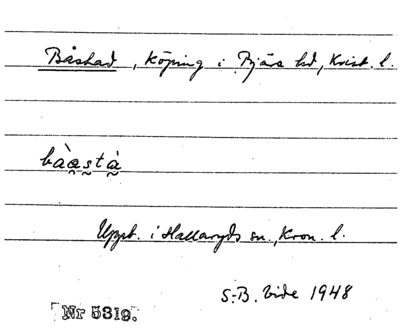 Båstad, köping i Bjäre hd, Krist. l.
bàa̰s̰tà̰
Uppt. i Hallaryds sn., Kron. l.
S.-B. Vide 1948
Nr 5319.